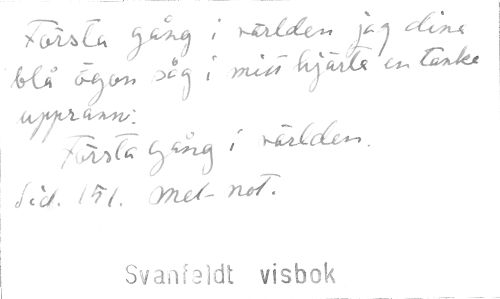 Första gång i världen jag dina
blå ögon såg i mitt hjärta en tanke
upprann:
Första gång i världen.
Sid. 151. Mel- not.
Svanfeldt visbok